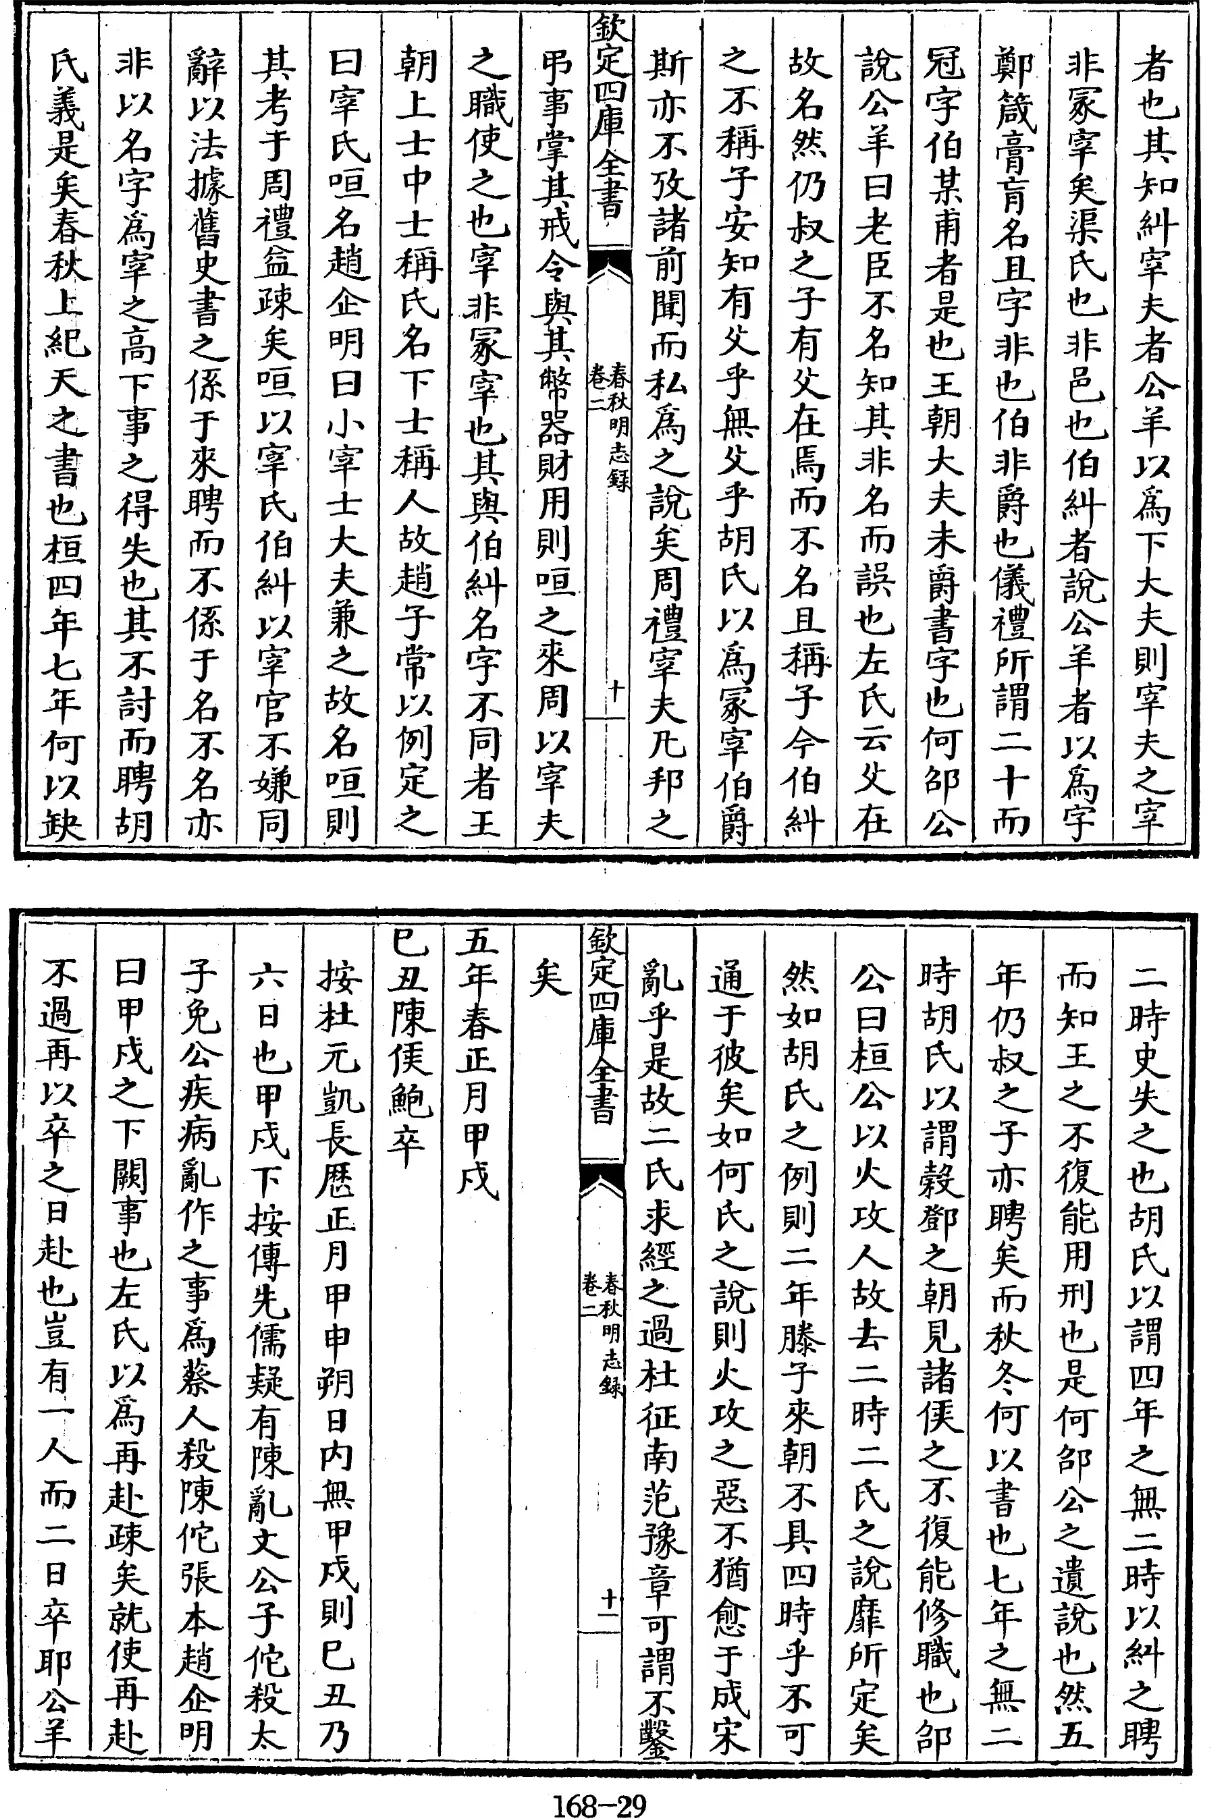 者也其知糾宰夫者公羊以爲下大夫則宰夫之宰
非冢宰矣渠氏也非邑也伯糾者說公羊者以爲字
鄭箴膏肓名且字非也伯非爵也儀禮所謂二十而
冠字伯某甫者是也王朝大夫未爵書字也何邵公
說公羊曰老臣不名知其非名而誤也左氏云父在
故名然仍叔之子有父在焉而不名且稱子今伯糾
之不稱子安知有父乎無父乎胡氏以爲冢宰伯爵
斯亦不攷諸前聞而私爲之說矣周禮宰夫凡邦之
欽定四庫全書
春秋明志錄
卷二
十
弔事掌其戒令與其幣器財用則咺之來周以宰夫
之職使之也宰非冢宰也其與伯糾名字不同者王
朝上士中士稱氏名下士稱人故趙子常以例定之
曰宰氏咺名趙企明曰小宰士大夫兼之故名咺則
其考于周禮益疎矣咺以宰氏伯糾以宰官不嫌同
辭以法據舊史書之係于來聘而不係于名不名亦
非以名字爲宰之高下事之得失也其不討而聘胡
氏義是矣春秋上紀天之書也桓四年七年何以缺
二時史失之也胡氏以謂四年之無二時以糾之聘
而知王之不復能用刑也是何邵公之遺說也然五
年仍叔之子亦聘矣而秋冬何以書也七年之無二
時胡氏以謂穀鄧之朝見諸侯之不復能修職也邵
公曰桓公以火攻人故去二時二氏之說靡所定矣
然如胡氏之例則二年滕子來朝不具四時乎不可
通于彼矣如何氏之說則火攻之惡不猶愈于成宋
亂乎是故二氏求經之過杜征南范豫章可謂不鑿
欽定四庫全書
春秋明志錄
卷二
十一
矣
五年春正月甲戌
己丑陳侯鮑卒
按杜元凱長歷正月甲申朔日内無甲戌則已丑乃
六日也甲戌下按傳先儒疑有陳亂文公子佗殺太
子免公疾病亂作之事爲蔡人殺陳佗張本趙企明
曰甲戌之下闕事也左氏以爲再赴疎矣就使再赴
不過再以卒之日赴也豈有一人而二日卒耶公羊
168-29